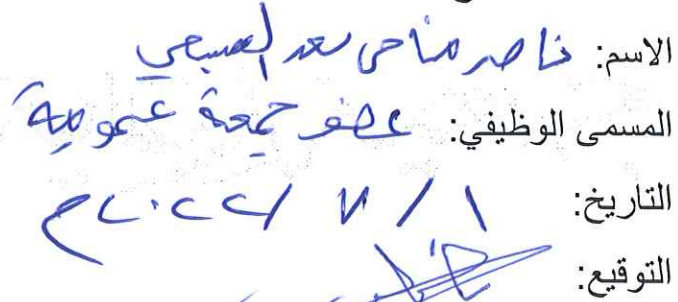 الاسم: ناصر مناحي سعد السبيعي
المسمى الوظيفي: عضو جمعية عمومية
التاريخ: ١ / ٧ / ٢٠٢٢م
التوقيع: